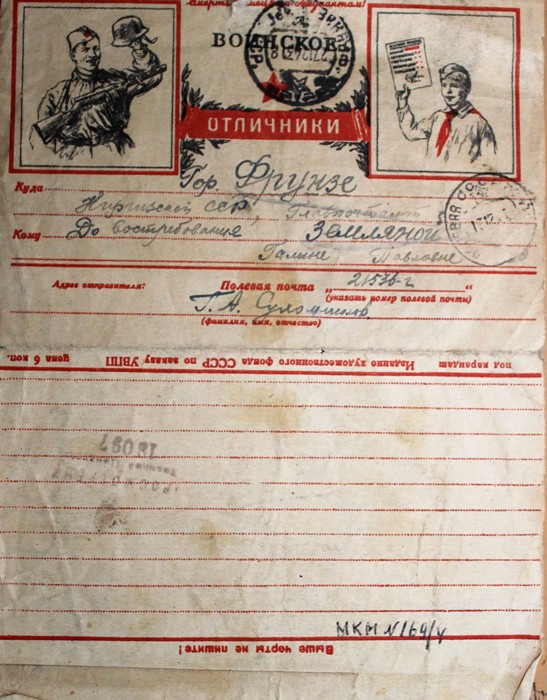 Смерть немецким оккупантам!
ВОИНСКОЕ
ОТЛИЧНИКИ
Куда Гор. Фрунзе
Киргизской сср, Главпочтамт
Кому До востребования Земляной
Галине Павловне
Адрес отправителя: Полевая почта „ 21536-г "
(указать номер полевой почты)
Г. А.
(фамилия, имя, отчество)
цена 6 коп. Издание художественного фонда СССР по заказу УВПП под карандаш
18097
МКМ N 169/4
Выше черты не пишите!